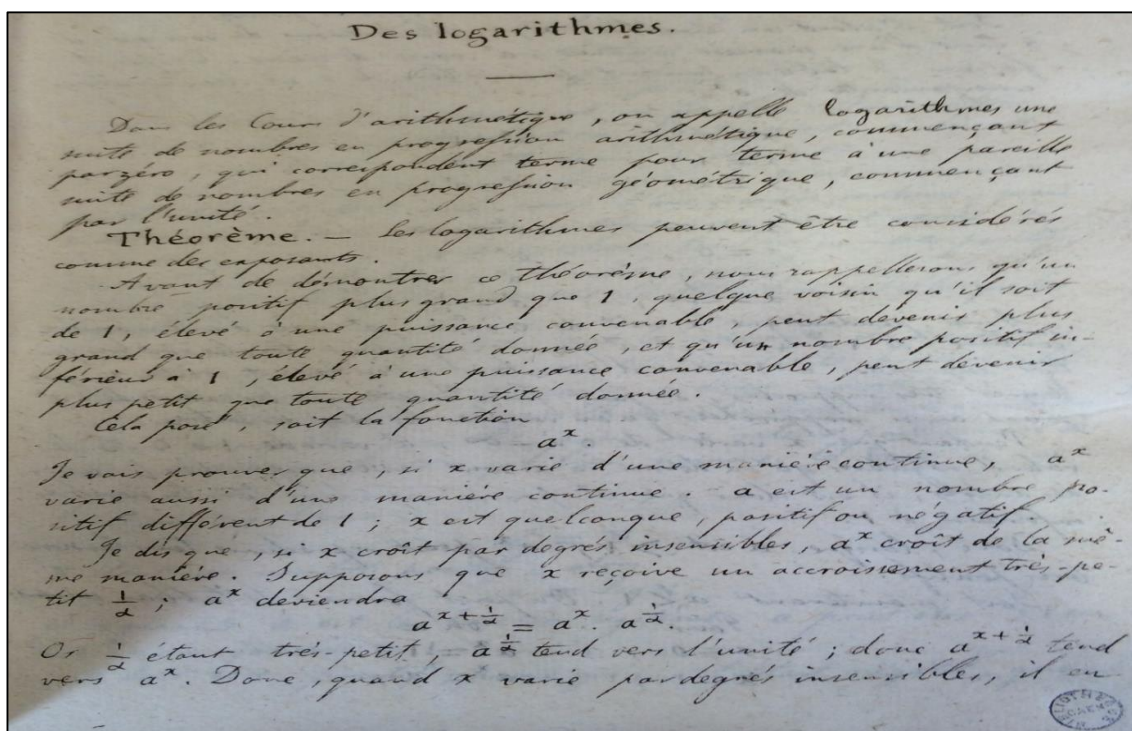 Des logarithmes.
Dans les Cours d'arithmétique, on appelle logarithmes une
suite de nombres en progression arithmétique, commençant
par zéro, qui correspondent terme pour terme à une pareille
suite de nombres en progression géométrique, commençant
par l'unité.
Théorème. — Les logarithmes peuvent être considérés
comme des exposants.
Avant de démontrer ce théorème, nous rappellerons qu'un
nombre positif plus grand que 1, quelque voisin qu'il soit
de 1, élevé à une puissance convenable, peut devenir plus
grand que toute quantité donnée, et qu'un nombre positif in-
férieur à 1, élevé à une puissance convenable, peut devenir
plus petit que toute quantité donnée.
Cela posé, soit la fonction
a^x.
Je vais prouver que, si x varie d'une manière continue, a^x
varie aussi d'une manière continue. a est un nombre po-
sitif différent de 1; x est quelconque, positif ou négatif.
Je dis que, si x croît par degrés insensibles, a^x croît de la mê-
me manière. Supposons que x reçoive un accroissement très-pe-
tit 1/α; a^x deviendra
a^(x + 1/α) = a^x. a^(1/α).
Or 1/α étant très-petit, a^(1/α) tend vers l'unité; donc a^(x + 1/α) tend
vers a^x. Donc, quand x varie par degrés insensibles, il en